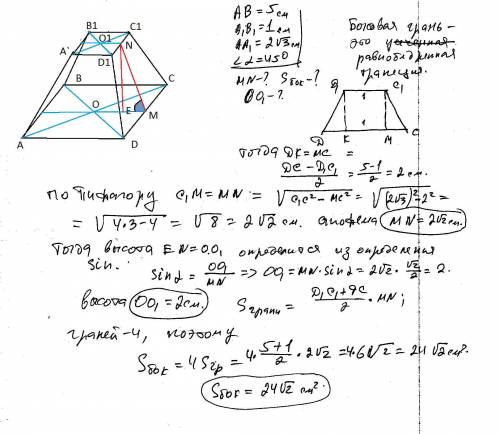 B1
C1
O1
N
A'
D1
B
C
O
E
M
A
D
AB = 5 см
A₁B₁ = 1 см
AA₁ = 2√3 см
∠α = 45°
MN - ? Sбок - ?
OO₁ - ?
Боковая грань -
это
равнобедренная
трапеция.
D₁
C₁
1
1
D
K
M
C
Тогда DK = MC =
= (DC - D₁C₁)/2 = (5-1)/2 = 2 см.
по Пифагору C₁M = MN = √(C₁C² - MC²) = √((2√3)² - 2²) =
= √(4·3-4) = √8 = 2√2 см. апофема MN = 2√2 см.
Тогда высота EN = OO₁ определится из определения
sin.
sin α = OO₁/MN => OO₁ = MN·sin α = 2√2 · √2/2 = 2.
высота OO₁ = 2 см.
Sграни = (D₁C₁ + DC)/2 · MN;
граней - 4, поэтому
Sбок = 4Sгр = 4·(5+1)/2 · 2√2 = 4·6√2 = 24√2 см².
Sбок = 24√2 см².